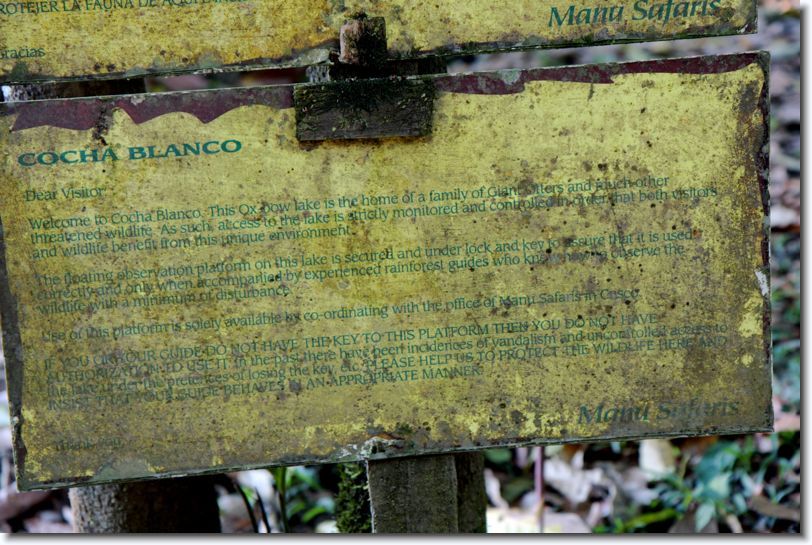 PROTEJER LA FAUNA DE AQUI
Gracias
Manu Safaris
COCHA BLANCO
Dear Visitor:
Welcome to Cocha Blanco. This Ox-bow lake is the home of a family of Giant Otters and much other
threatened wildlife. As such, access to the lake is strictly monitored and controlled in order that both visitors
and wildlife benefit from this unique environment.
The floating observation platform on this lake is secured and under lock and key to assure that it is used
correctly and only when accompanied by experienced rainforest guides who know how to observe the
wildlife with a minimum of disturbance.
Use of this platform is solely available by co-ordinating with the office of Manu Safaris in Cusco.
IF YOU OR YOUR GUIDE DO NOT HAVE THE KEY TO THIS PLATFORM THEN YOU DO NOT HAVE
AUTHORIZATION TO USE IT. In the past there have been incidences of vandalism and uncontrolled access to
the lake under the pretences of losing the key, etc. PLEASE HELP US TO PROTECT THE WILDLIFE HERE AND
INSIST THAT YOUR GUIDE BEHAVES IN AN APPROPRIATE MANNER.
Thank you
Manu Safaris